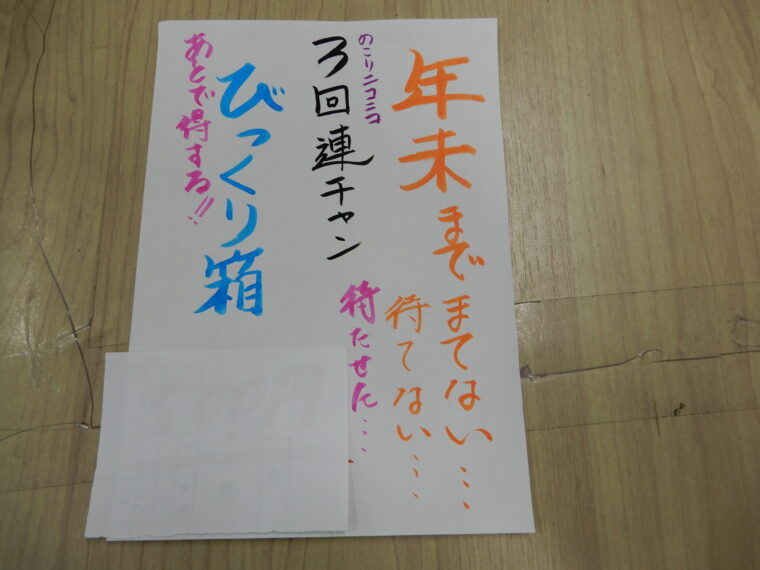 年末まで
まてない…
待てない…
待たせん…
のこりニコニコ
3回連チャン
びっくり箱
あとで得する!!